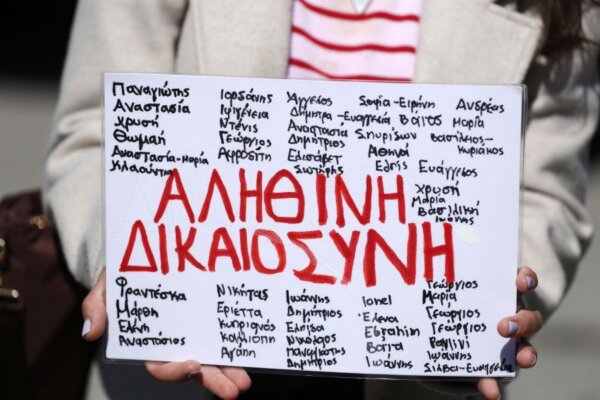 Παναγιώτης
Αναστασία
Χρυσή
Θωμαή
Αναστασία-Μαρία
Κλαούντια
Ιορδάνης
Ιφιγένεια
Ντένις
Γεώργιος
Αφροδίτη
Άγγελος
Δήμητρα-Ευαγγελία
Αναστασία
Δημήτριος
Ελισάβετ
Σωτήρης
Σοφία-Ειρήνη
Βάιος
Σπυρίδων
Αθηνά
Εdris
Ανδρέας
Μαρία
Βασίλειος-
Κυριάκος
Ευάγγελος
Χρυσή
Μαρία
Βασιλική
Ιωάννης
ΑΛΗΘΙΝΗ
ΔΙΚΑΙΟΣΥΝΗ
Φραντέσκα
Μάρθη
Ελένη
Αναστάσιος
Νικήτας
Εριέττα
Κυπριανός
Καλλιόπη
Αγάπη
Ιωάννης
Δημήτριος
Ελπίδα
Νικόλαος
Παναγιώτης
Δημήτριος
Ionel
Έλενα
Ebrahim
Βάια
Ιωάννης
Γεώργιος
Μαρία
Γεώργιος
Γεώργιος
Παυλίνι
Ιωάννα
Σίλβα-Ευαγγελία